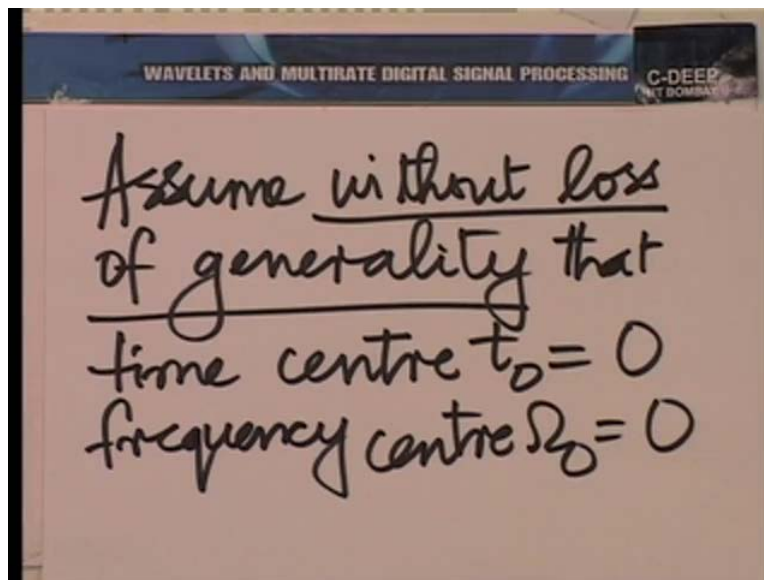 WAVELETS AND MULTIRATE DIGITAL SIGNAL PROCESSING
C-DEEP
IIT BOMBAY
Assume without loss
of generality that
time centre t₀ = 0
frequency centre Ω₀ = 0